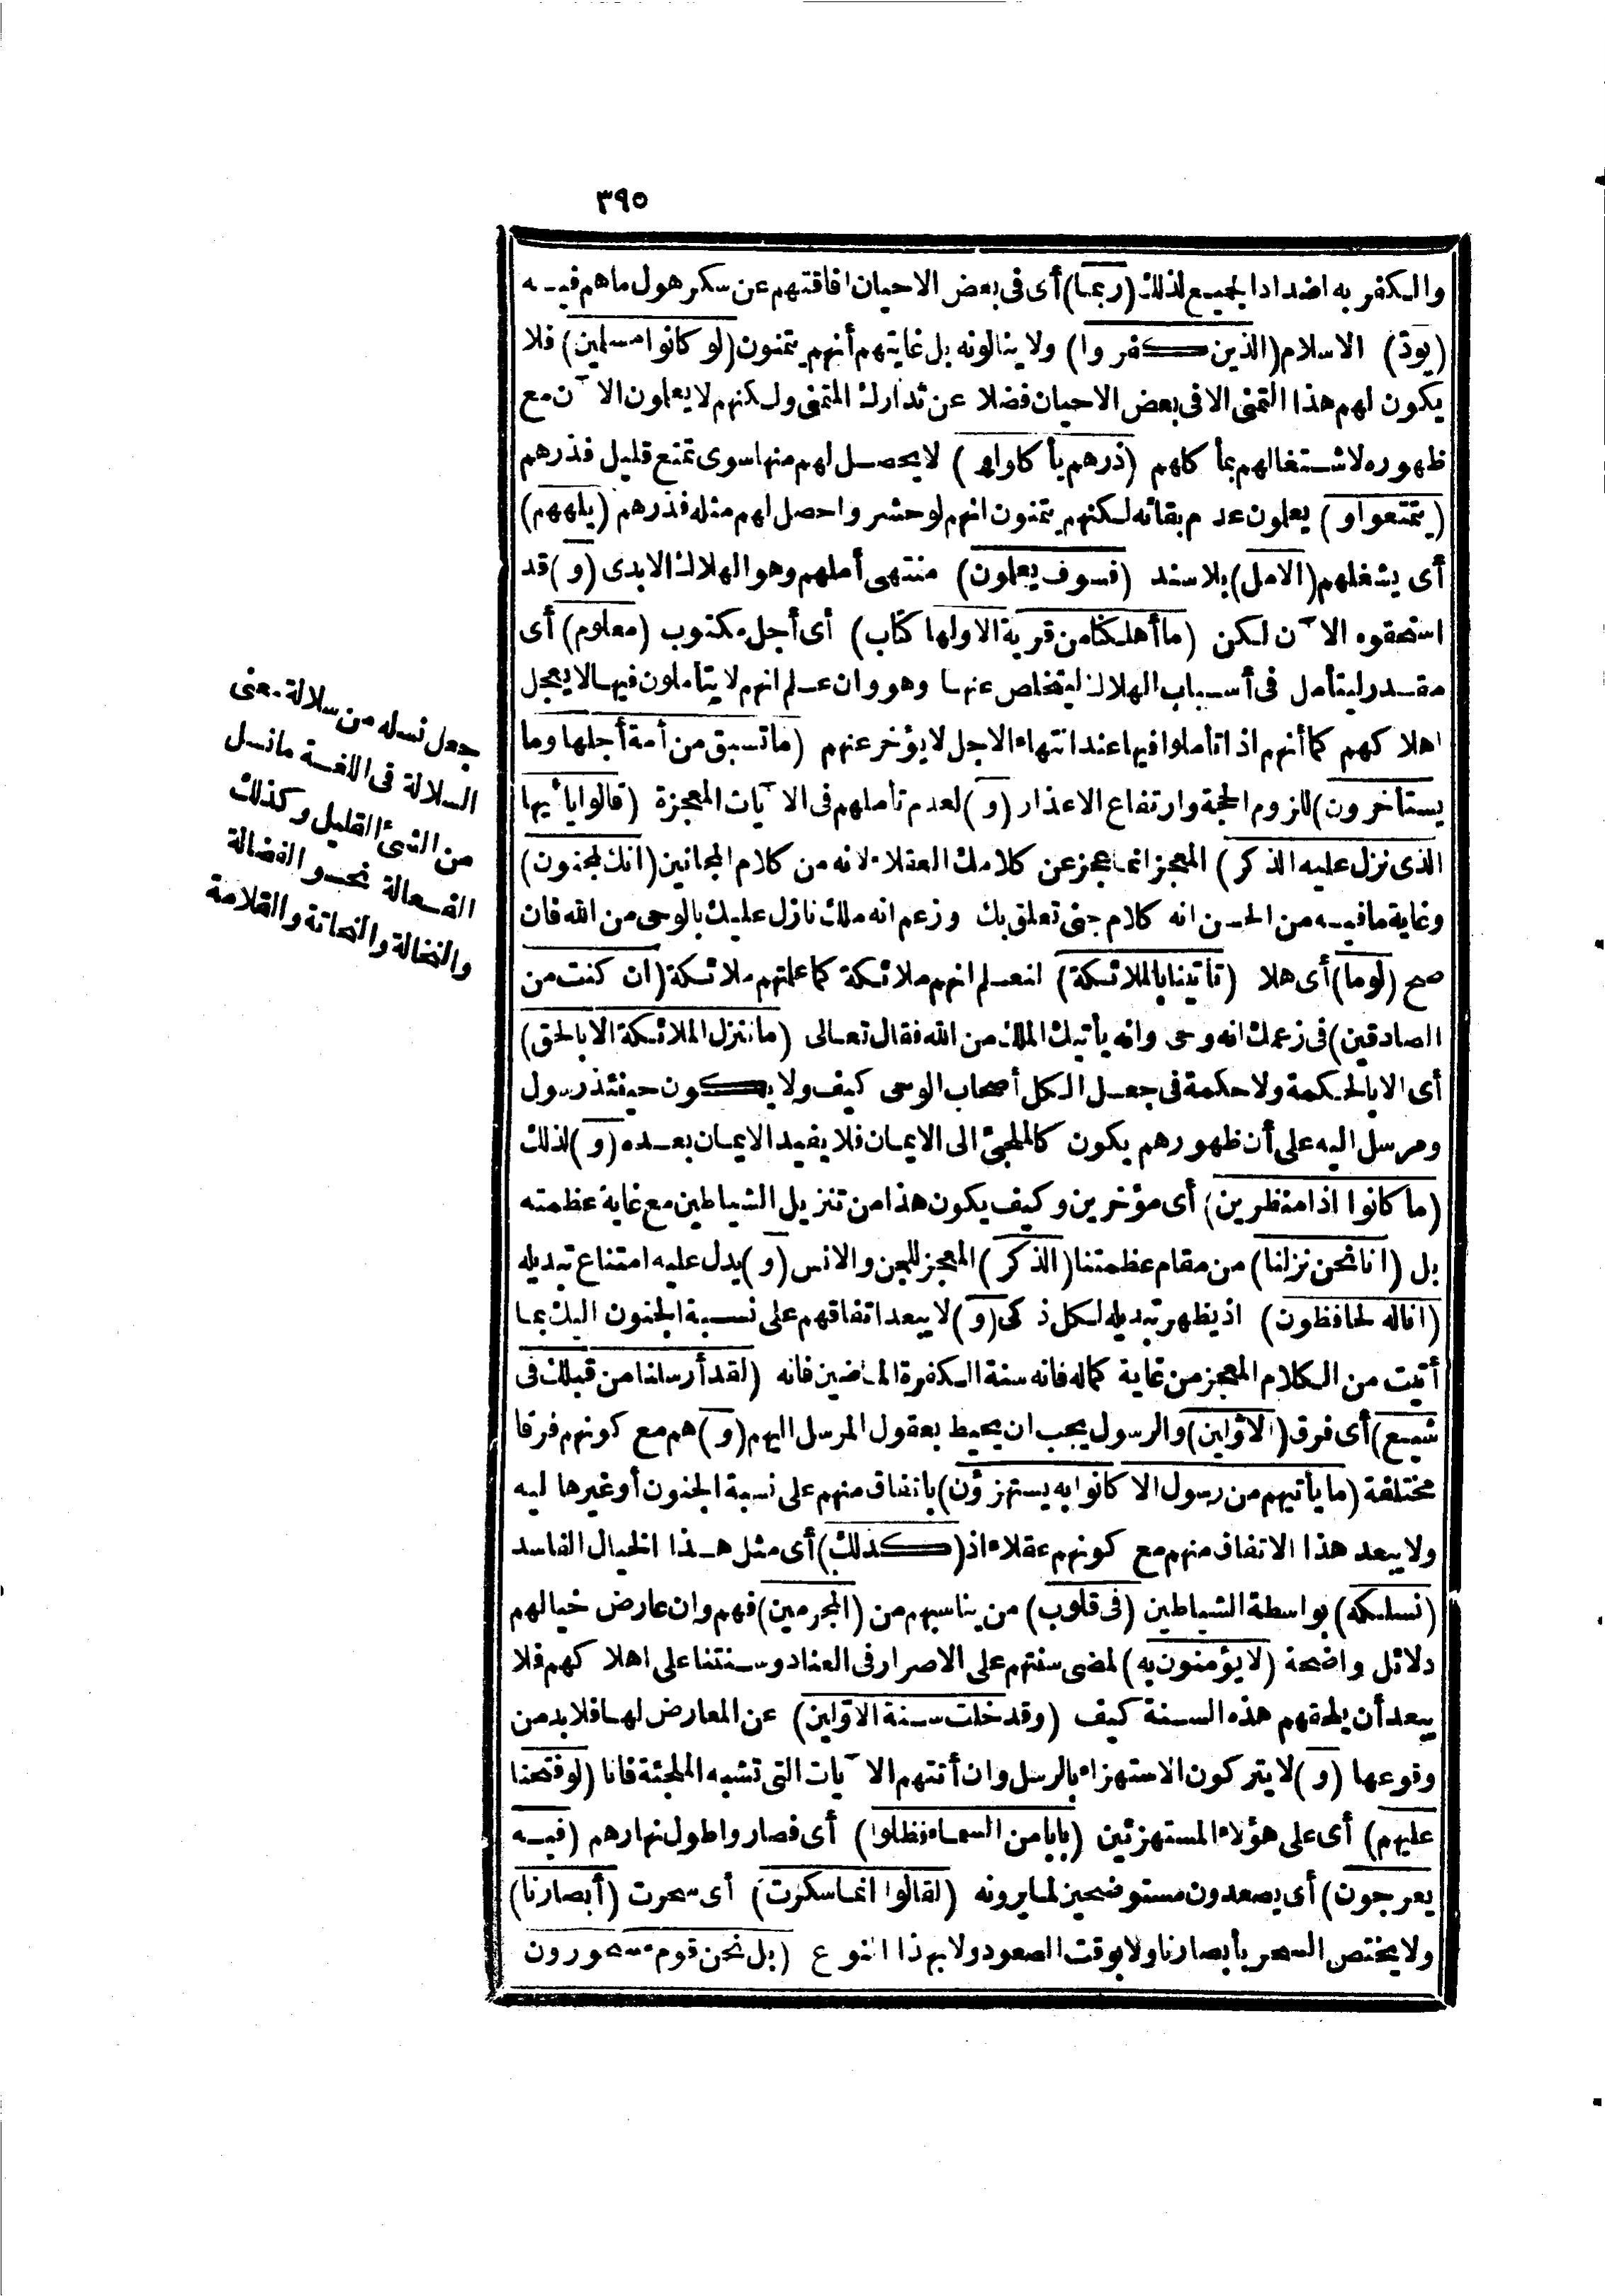 ٣٩٥
والكفر به اضدادا لجميع لذلك (ربما) أى فى بعض الاحيان افاقتهم عن سكر هول ما هم فيه
(يودّ) الاسلام (الذين كفروا) ولا ينالونه بل غايتهم أنهم يتمنون (لو كانوا مسلمين) فلا
يكون لهم هذا التمنى الا فى بعض الاحيان فضلا عن تدارك المتمنى ولكنهم لا يعلمون الآن مع
ظهوره لاشتغالهم بمأكلهم (ذرهم يأكلوا و) لا يحصل لهم منها سوى تمتع قليل فذرهم
(يتمتعوا و) يعلمون عدم بقائه لكنهم يتمنون انهم لو حشروا حصل لهم مثله فذرهم (يلههم)
أى يشغلهم (الامل) بلا سند (فسوف يعلمون) منتهى أملهم وهو الهلاك الابدى (و) قد
استحقوه الآن لكن (ما أهلكنا من قرية الا ولها كتاب) أى أجل مكتوب (معلوم) أى
مقدر ليتأمل فى أسباب الهلاك ليتخلص عنها وهو وان علم انهم لا يتأملون فيها لا يعجل
اهلاكهم كما أنهم اذا تأملوا فيها عند انتهاء الاجل لا يؤخر عنهم (ما تسبق من أمة أجلها وما
يستأخرون) للزوم الحجة وارتفاع الاعذار (و) لعدم تأملهم فى الآيات المعجزة (قالوا يا أيها
الذى نزل عليه الذكر) المعجز انما عجز عن كلامك العقلاء لانه من كلام المجانين (انك لمجنون)
وغاية ما فيه من الحسن انه كلام جنى تعلق بك وزعم انه ملك نازل عليك بالوحى من الله فان
صح (لوما) أى هلا (تأتينا بالملائكة) لنعلم انهم ملائكة كما علمتهم ملائكة (ان كنت من
الصادقين) فى زعمك انه وحى وانه يأتيك الملك من الله فقال تعالى (ما ننزل الملائكة الا بالحق)
أى الا بالحكمة ولا حكمة فى جعل الكل أصحاب الوحى كيف ولا يكون حينئذ رسول
ومرسل اليه على أن ظهورهم يكون كالملجئ الى الايمان فلا يفيد الايمان بعده (و) لذلك
(ما كانوا اذا منظرين) أى مؤخرين وكيف يكون هذا من تنزيل الشياطين مع غاية عظمته
بل (انا نحن نزلنا) من مقام عظمتنا (الذكر) المعجز للجن والانس (و) يدل عليه امتناع تبديله
(انا له لحافظون) اذ يظهر تبديله لكل ذكى (و) لا يبعد اتفاقهم على نسبة الجنون اليك بما
أتيت من الكلام المعجز من غاية كماله فانه سنة الكفرة الماضين فانه (لقد أرسلنا من قبلك فى
شيع) أى فرق (الاوّلين) والرسول يجب ان يحيط بعقول المرسل اليهم (و) هم مع كونهم فرقا
مختلفة (ما يأتيهم من رسول الا كانوا به يستهزؤن) باتفاق منهم على نسبة الجنون أو غيرها ليه
ولا يبعد هذا الاتفاق منهم مع كونهم عقلاء اذ (كذلك) أى مثل هذا الخيال الفاسد
(نسلكه) بواسطة الشياطين (فى قلوب) من يناسبهم من (المجرمين) فهم وان عارض خيالهم
دلائل واضحة (لا يؤمنون به) لمضى سنتهم على الاصرار فى العناد وسنتنا على اهلاكهم فلا
يبعد أن يلحقهم هذه السنة كيف (وقد خلت سنة الاوّلين) عن المعارض لها فلا بد من
وقوعها (و) لا يتركون الاستهزاء بالرسل وان أتتهم الآيات التى تشبه الملجئة فانا (لو فتحنا
عليهم) أى على هؤلاء المستهزئين (بابا من السماء فظلوا) أى فصاروا طول نهارهم (فيه
يعرجون) أى يصعدون مستوضحين لما يرونه (لقالوا انما سكرت) أى سحرت (أبصارنا)
ولا يختص السحر بأبصارنا ولا بوقت الصعود ولا بهذا النوع (بل نحن قوم مسحورون
جعل نسله من سلالة معنى
السلالة فى اللغة ما نسل
من الشئ القليل وكذلك
الفعالة نحو الفضالة
والنخالة والنحاتة والقلامة